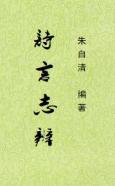 朱自清 編著
詩言志辨